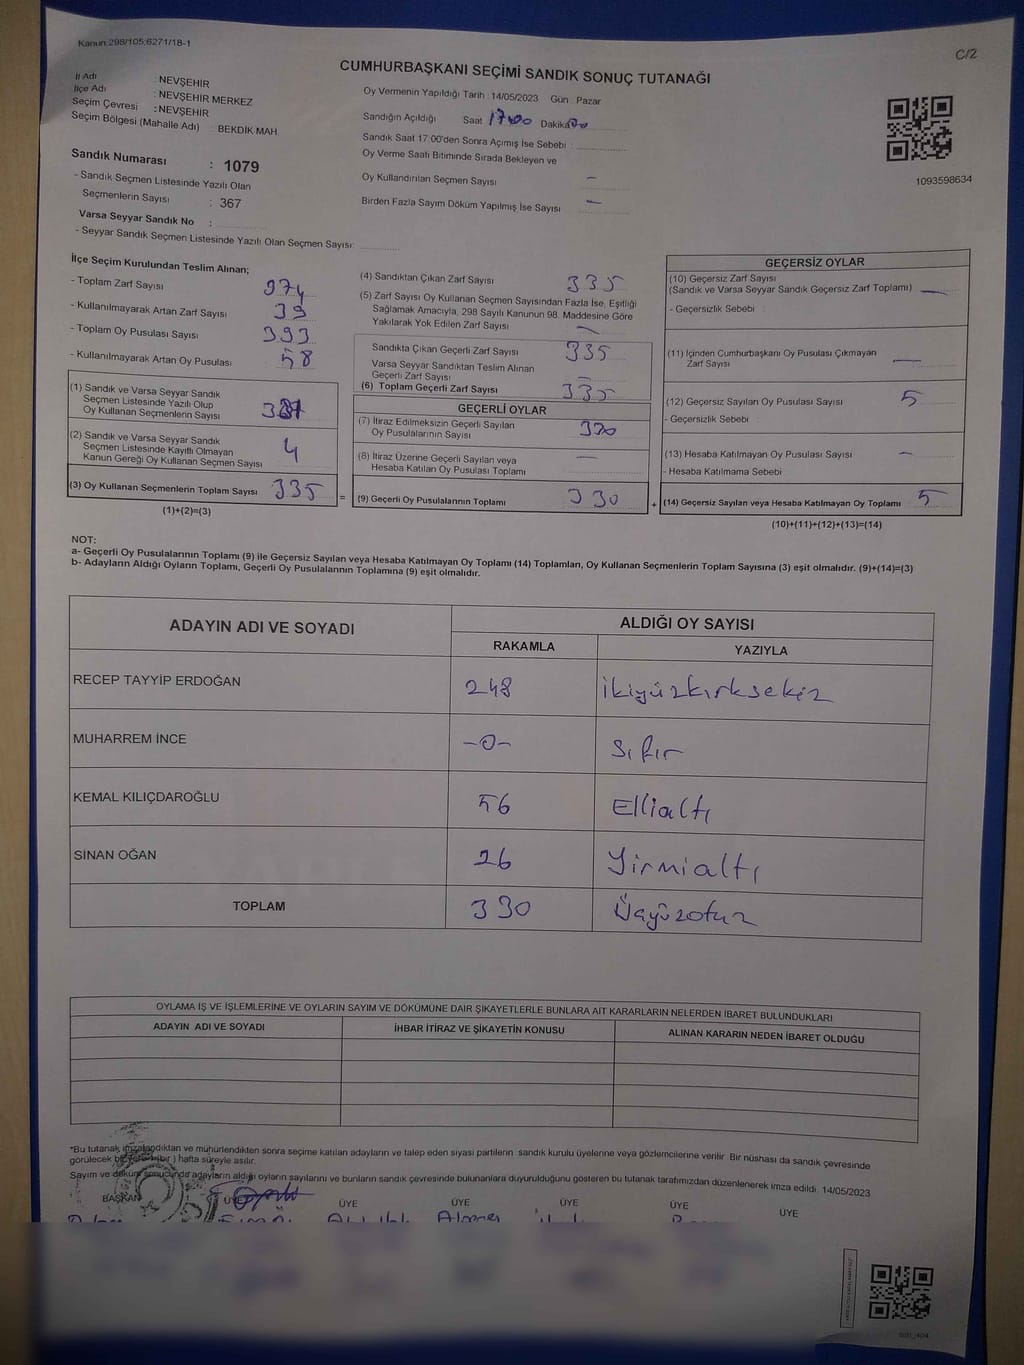 Kanun:298/105;6271/18-1
C/2
CUMHURBAŞKANI SEÇİMİ SANDIK SONUÇ TUTANAĞI
İl Adı : NEVŞEHİR
İlçe Adı : NEVŞEHİR MERKEZ
Seçim Çevresi : NEVŞEHİR
Seçim Bölgesi (Mahalle Adı) : BEKDİK MAH.
Sandık Numarası : 1079
- Sandık Seçmen Listesinde Yazılı Olan
Seçmenlerin Sayısı : 367
Varsa Seyyar Sandık No :
- Seyyar Sandık Seçmen Listesinde Yazılı Olan Seçmen Sayısı:
Oy Vermenin Yapıldığı Tarih : 14/05/2023 Gün : Pazar
Sandığın Açıldığı Saat 17:00 Dakika
Sandık Saat 17:00'den Sonra Açımış İse Sebebi :
Oy Verme Saati Bitiminde Sırada Bekleyen ve
Oy Kullandırılan Seçmen Sayısı —
Birden Fazla Sayım Döküm Yapılmış İse Sayısı —
1093598634
İlçe Seçim Kurulundan Teslim Alınan;
- Toplam Zarf Sayısı 374
- Kullanılmayarak Artan Zarf Sayısı 39
- Toplam Oy Pusulası Sayısı 393
- Kullanılmayarak Artan Oy Pusulası 58
(1) Sandık ve Varsa Seyyar Sandık
Seçmen Listesinde Yazılı Olup
Oy Kullanan Seçmenlerin Sayısı
(2) Sandık ve Varsa Seyyar Sandık
Seçmen Listesinde Kayıtlı Olmayan
Kanun Gereği Oy Kullanan Seçmen Sayısı 4
(3) Oy Kullanan Seçmenlerin Toplam Sayısı 335
(1)+(2)=(3)
=
(4) Sandıktan Çıkan Zarf Sayısı 335
(5) Zarf Sayısı Oy Kullanan Seçmen Sayısından Fazla İse, Eşitliği
Sağlamak Amacıyla, 298 Sayılı Kanunun 98. Maddesine Göre
Yakılarak Yok Edilen Zarf Sayısı —
Sandıkta Çıkan Geçerli Zarf Sayısı 335
Varsa Seyyar Sandıktan Teslim Alınan
Geçerli Zarf Sayısı —
(6) Toplam Geçerli Zarf Sayısı 335
GEÇERLİ OYLAR
(7) İtiraz Edilmeksizin Geçerli Sayılan
Oy Pusulalarının Sayısı 330
(8) İtiraz Üzerine Geçerli Sayılan veya
Hesaba Katılan Oy Pusulası Toplamı —
(9) Geçerli Oy Pusulalarının Toplamı 330
+
GEÇERSİZ OYLAR
(10) Geçersiz Zarf Sayısı
(Sandık ve Varsa Seyyar Sandık Geçersiz Zarf Toplamı) —
- Geçersizlik Sebebi :
(11) İçinden Cumhurbaşkanı Oy Pusulası Çıkmayan
Zarf Sayısı —
(12) Geçersiz Sayılan Oy Pusulası Sayısı 5
- Geçersizlik Sebebi :
(13) Hesaba Katılmayan Oy Pusulası Sayısı —
- Hesaba Katılmama Sebebi
(14) Geçersiz Sayılan veya Hesaba Katılmayan Oy Toplamı 5
(10)+(11)+(12)+(13)=(14)
NOT:
a- Geçerli Oy Pusulalarının Toplamı (9) ile Geçersiz Sayılan veya Hesaba Katılmayan Oy Toplamı (14) Toplamları, Oy Kullanan Seçmenlerin Toplam Sayısına (3) eşit olmalıdır. (9)+(14)=(3)
b- Adayların Aldığı Oyların Toplamı, Geçerli Oy Pusulalarının Toplamına (9) eşit olmalıdır.
ADAYIN ADI VE SOYADI
ALDIĞI OY SAYISI
RAKAMLA YAZIYLA
RECEP TAYYİP ERDOĞAN 248 ikiyüzkırksekiz
MUHARREM İNCE -0- Sıfır
KEMAL KILIÇDAROĞLU 56 Ellialtı
SİNAN OĞAN 26 Yirmialtı
TOPLAM 330 Üçyüzotuz
OYLAMA İŞ VE İŞLEMLERİNE VE OYLARIN SAYIM VE DÖKÜMÜNE DAİR ŞİKAYETLERLE BUNLARA AİT KARARLARIN NELERDEN İBARET BULUNDUKLARI
ADAYIN ADI VE SOYADI İHBAR İTİRAZ VE ŞİKAYETİN KONUSU ALINAN KARARIN NEDEN İBARET OLDUĞU
*Bu tutanak imzalandıktan ve mühürlendikten sonra seçime katılan adayların ve talep eden siyasi partilerin sandık kurulu üyelerine veya gözlemcilerine verilir. Bir nüshası da sandık çevresinde
görülecek bir yere (bir) hafta süreyle asılır.
Sayım ve döküm sonucunda adayların aldığı oyların sayılarını ve bunların sandık çevresinde bulunanlara duyurulduğunu gösteren bu tutanak tarafımızdan düzenlenerek imza edildi. 14/05/2023
BAŞKAN ÜYE ÜYE ÜYE ÜYE ÜYE ÜYE